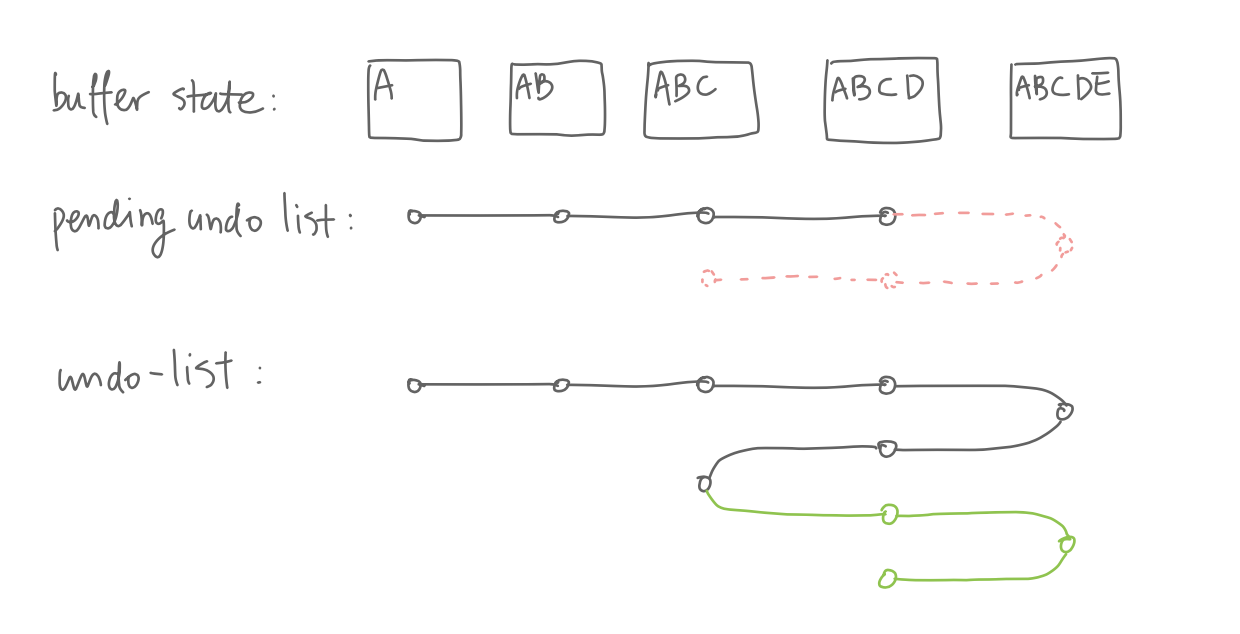 buffer state: A AB ABC ABCD ABCDE
pending undo list:
undo-list: